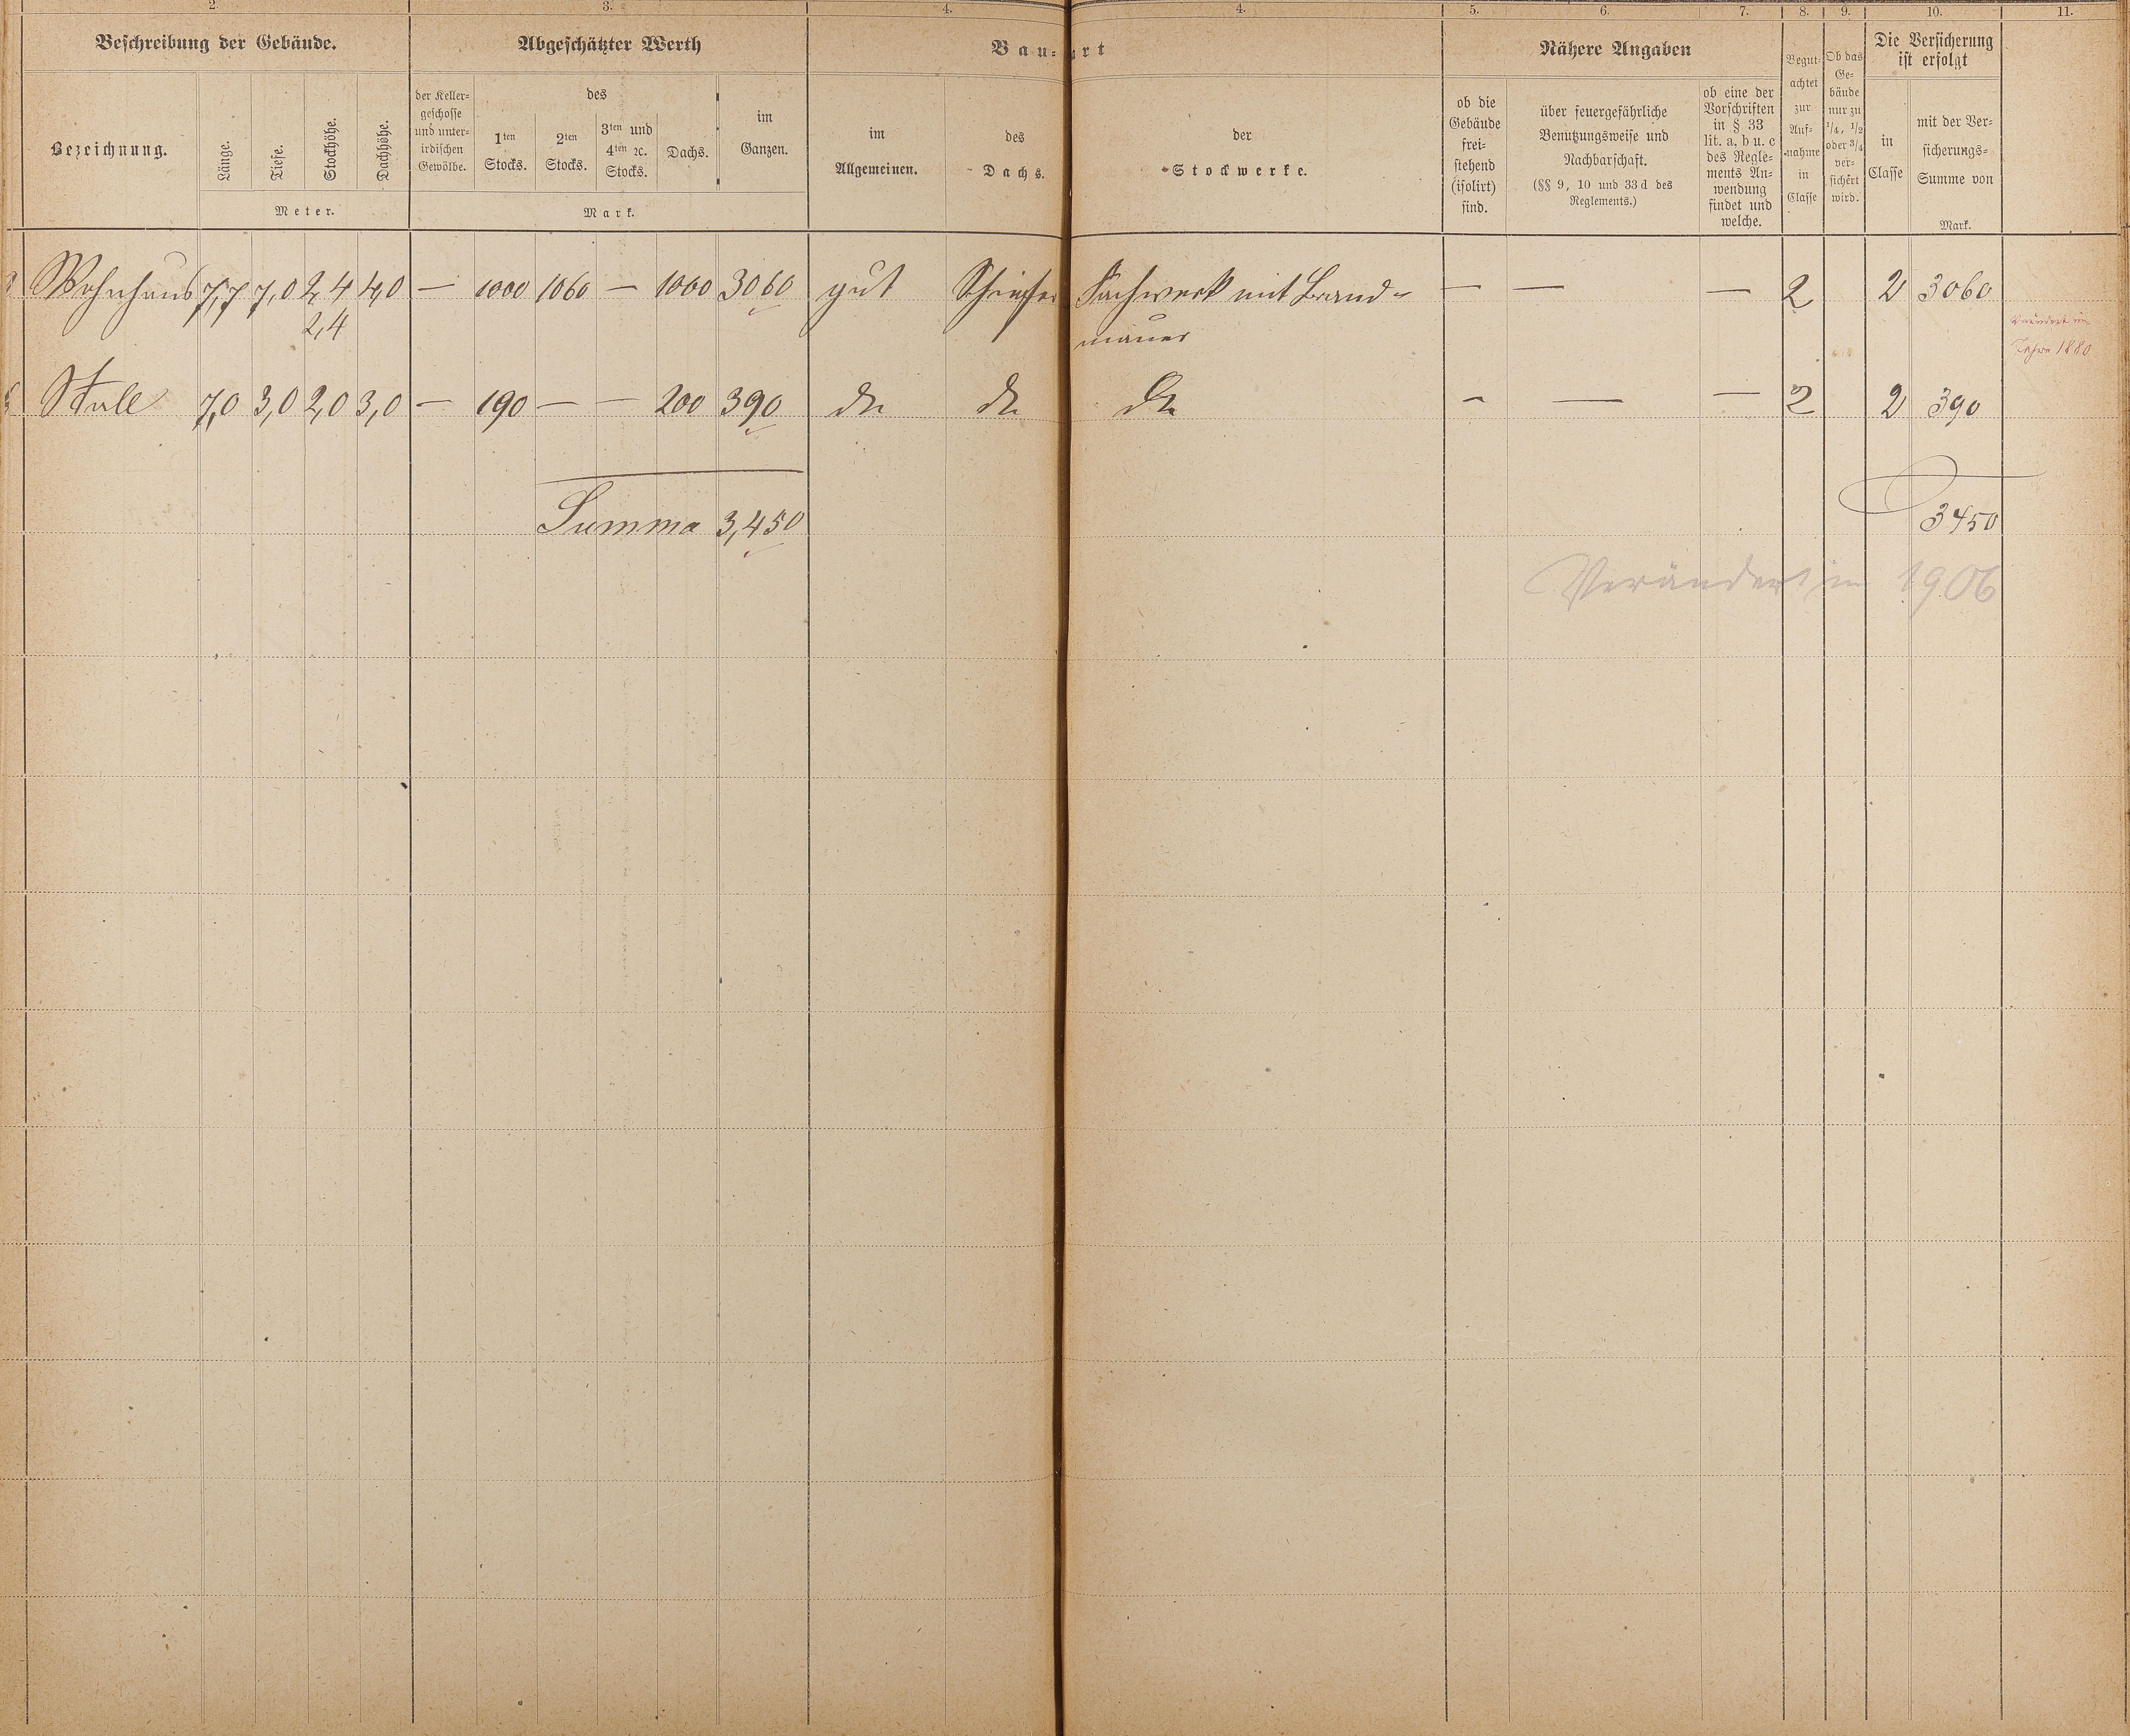 2. 3. 4. 4. 5. 6. 7. 8. 9. 10. 11.
Beschreibung der Gebäude. Abgeschätzter Werth Bau- art Nähere Angaben
Bezeichnung. Länge. Tiefe. Stockhöhe. Dachhöhe.
Meter.
der Keller-
geschosse
und unter-
irdischen
Gewölbe.
des
1ten
Stocks.
2ten
Stocks.
3ten und
4ten ꝛc.
Stocks.
Dachs.
im
Ganzen.
Mark.
im
Allgemeinen.
des
Dachs.
der
Stockwerke.
ob die
Gebäude
frei-
stehend
(isolirt)
sind.
über feuergefährliche
Benutzungsweise und
Nachbarschaft.
(§§ 9, 10 und 33 d des
Reglements.)
ob eine der
Vorschriften
in § 33
lit. a, b u. c
des Regle-
ments An-
wendung
findet und
welche.
Begut-
achtet
zur
Auf-
nahme
in
Classe
Ob das
Ge-
bäude
nur zu
1/4, 1/2
oder 3/4
ver-
sichert
wird.
Die Versicherung
ist erfolgt
in
Classe
mit der Ver-
sicherungs-
Summe von
Mark.
Wohnhaus 7,7 7,0 2,4 4,0 — 1000 1060 — 1000 3060 gut Schiefer Fachwerk mit Brand- — — — 2 2 3060
2,4 mauer
Verändert im
Jahre 1880
Stall 7,0 3,0 2,0 3,0 — 190 — — 200 390 do do do - — — 2 2 390
Summa 3,450 3450
Verändert in 1906